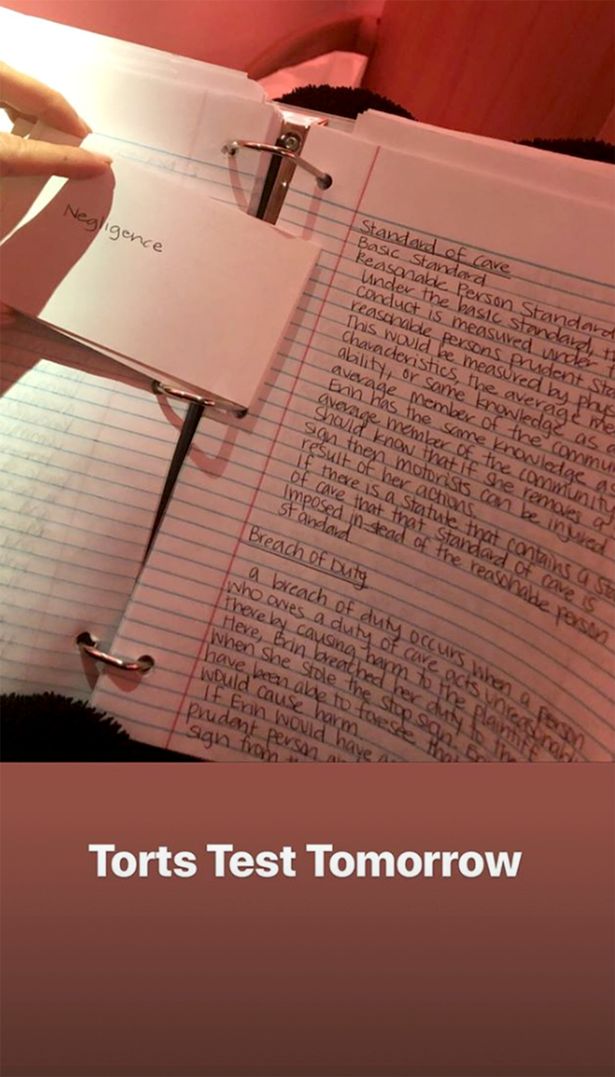 Negligence
Standard of care
Basic Standard
Reasonable Person Standard
Under the basic standard,
conduct is measured under
reasonable persons prudent
This would be measured by
characteristics, the average
ability, or same knowledge, as
average member of the
Erin has the same knowledge
average member of the community
should know that if she removes a
sign then motorists can be injured
result of her actions.
If there is a statute that contains a
of care that that standard of care is
Imposed in-stead of the reasonable person
standard
Breach of Duty
a breach of duty occurs when a person
who owes a duty of care acts
thereby causing harm to the plaintiff
Here, Erin breathed her duty to the
when she stole the stop sign,
have been able to foresee that
would cause harm.
If Erin would have
prudent person
sign from
Torts Test Tomorrow